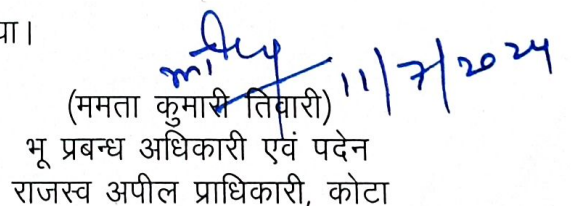 पा।
11/7/2024
(ममता कुमारी तिवारी)
भू प्रबन्ध अधिकारी एवं पदेन
राजस्व अपील प्राधिकारी, कोटा